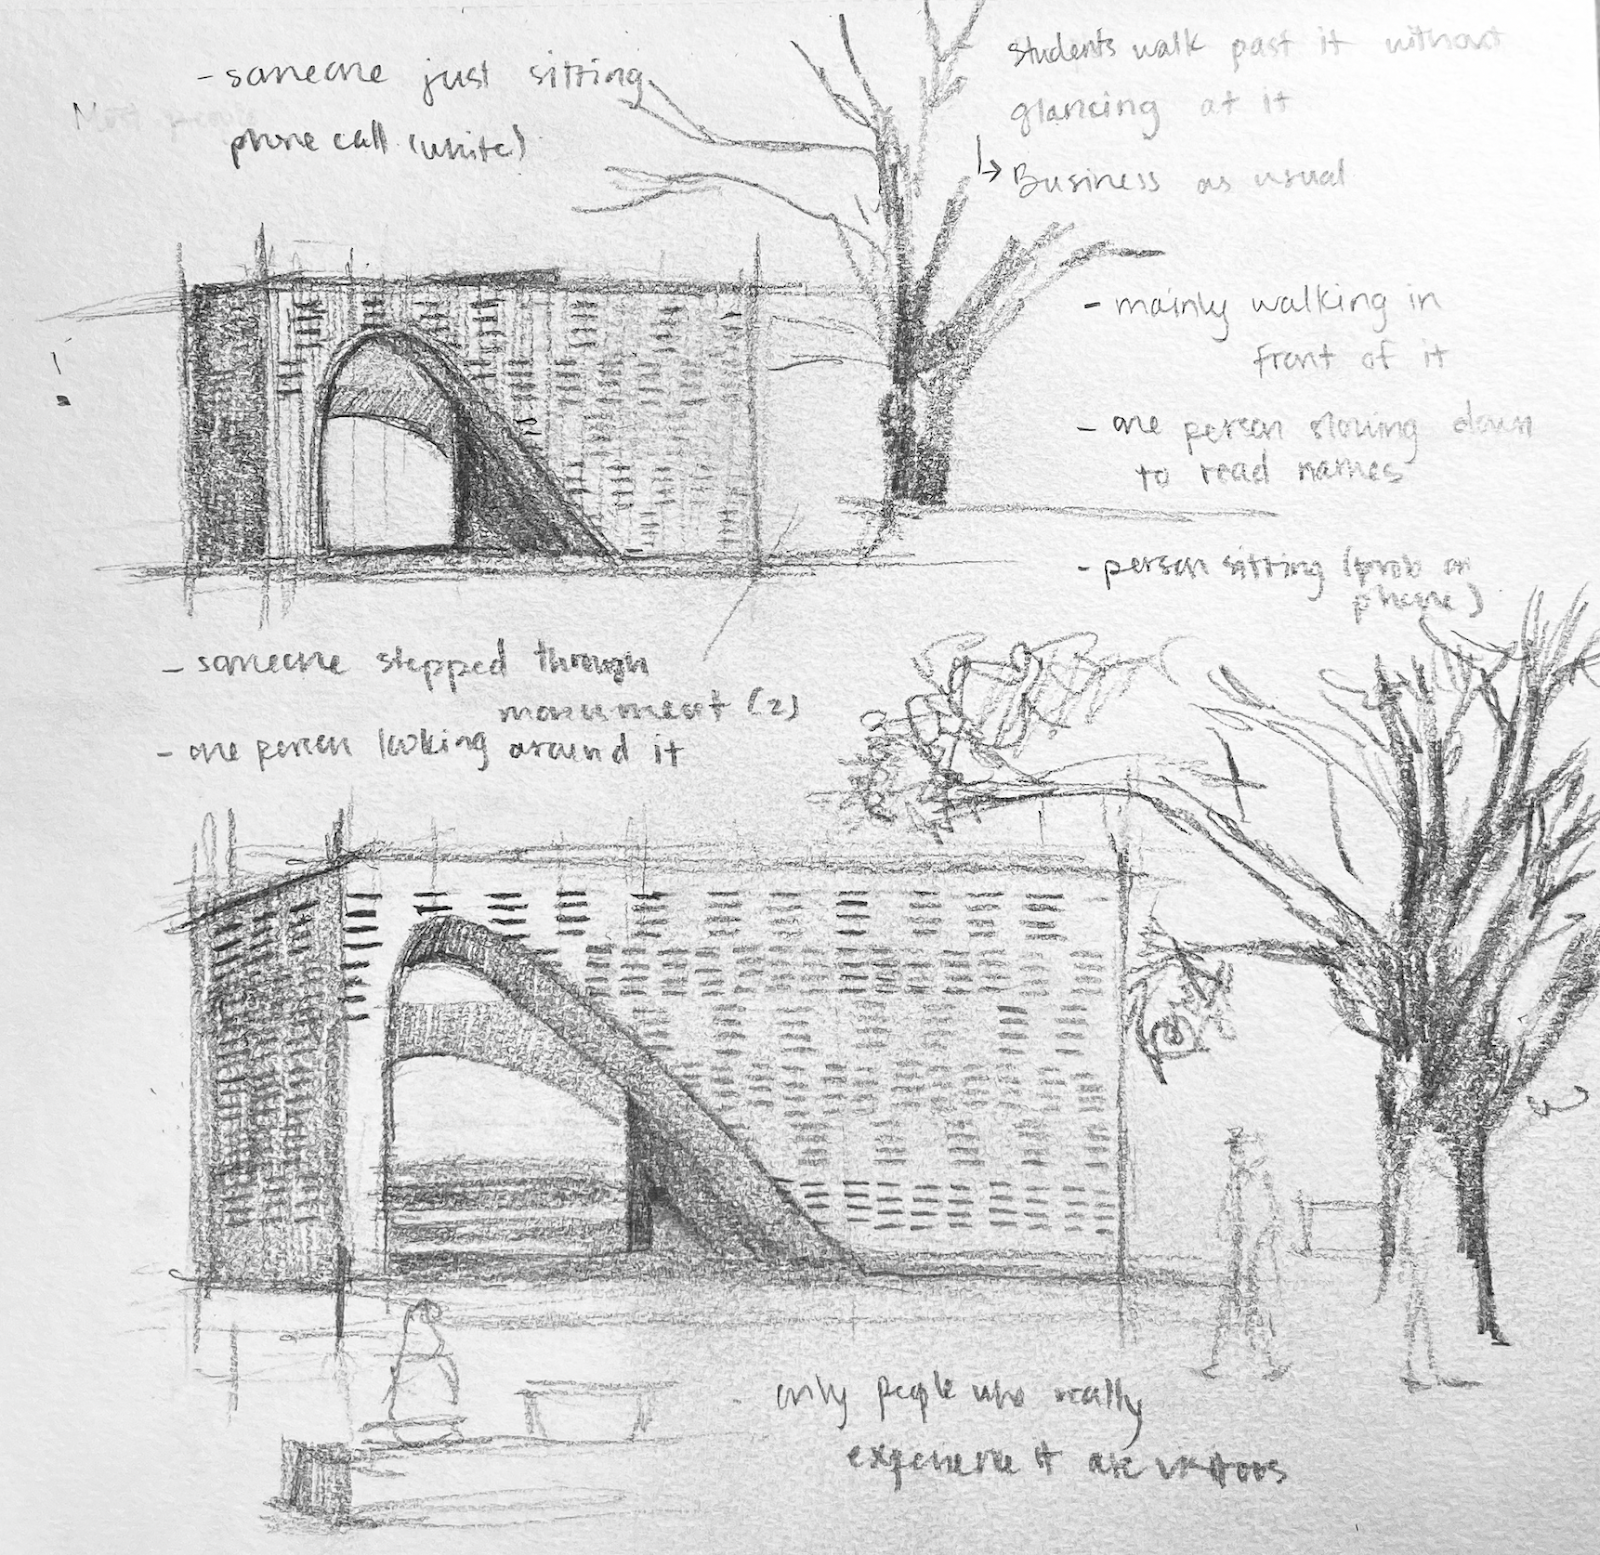 - someone just sitting
Most people
phone call (white)
students walk past it without
glancing at it
↳ Business as usual
- mainly walking in
front of it
- one person slowing down
to read names
- person sitting (prob on
phone)
- someone stepped through
monument (2)
- one person looking around it
- only people who really
experience it are visitors